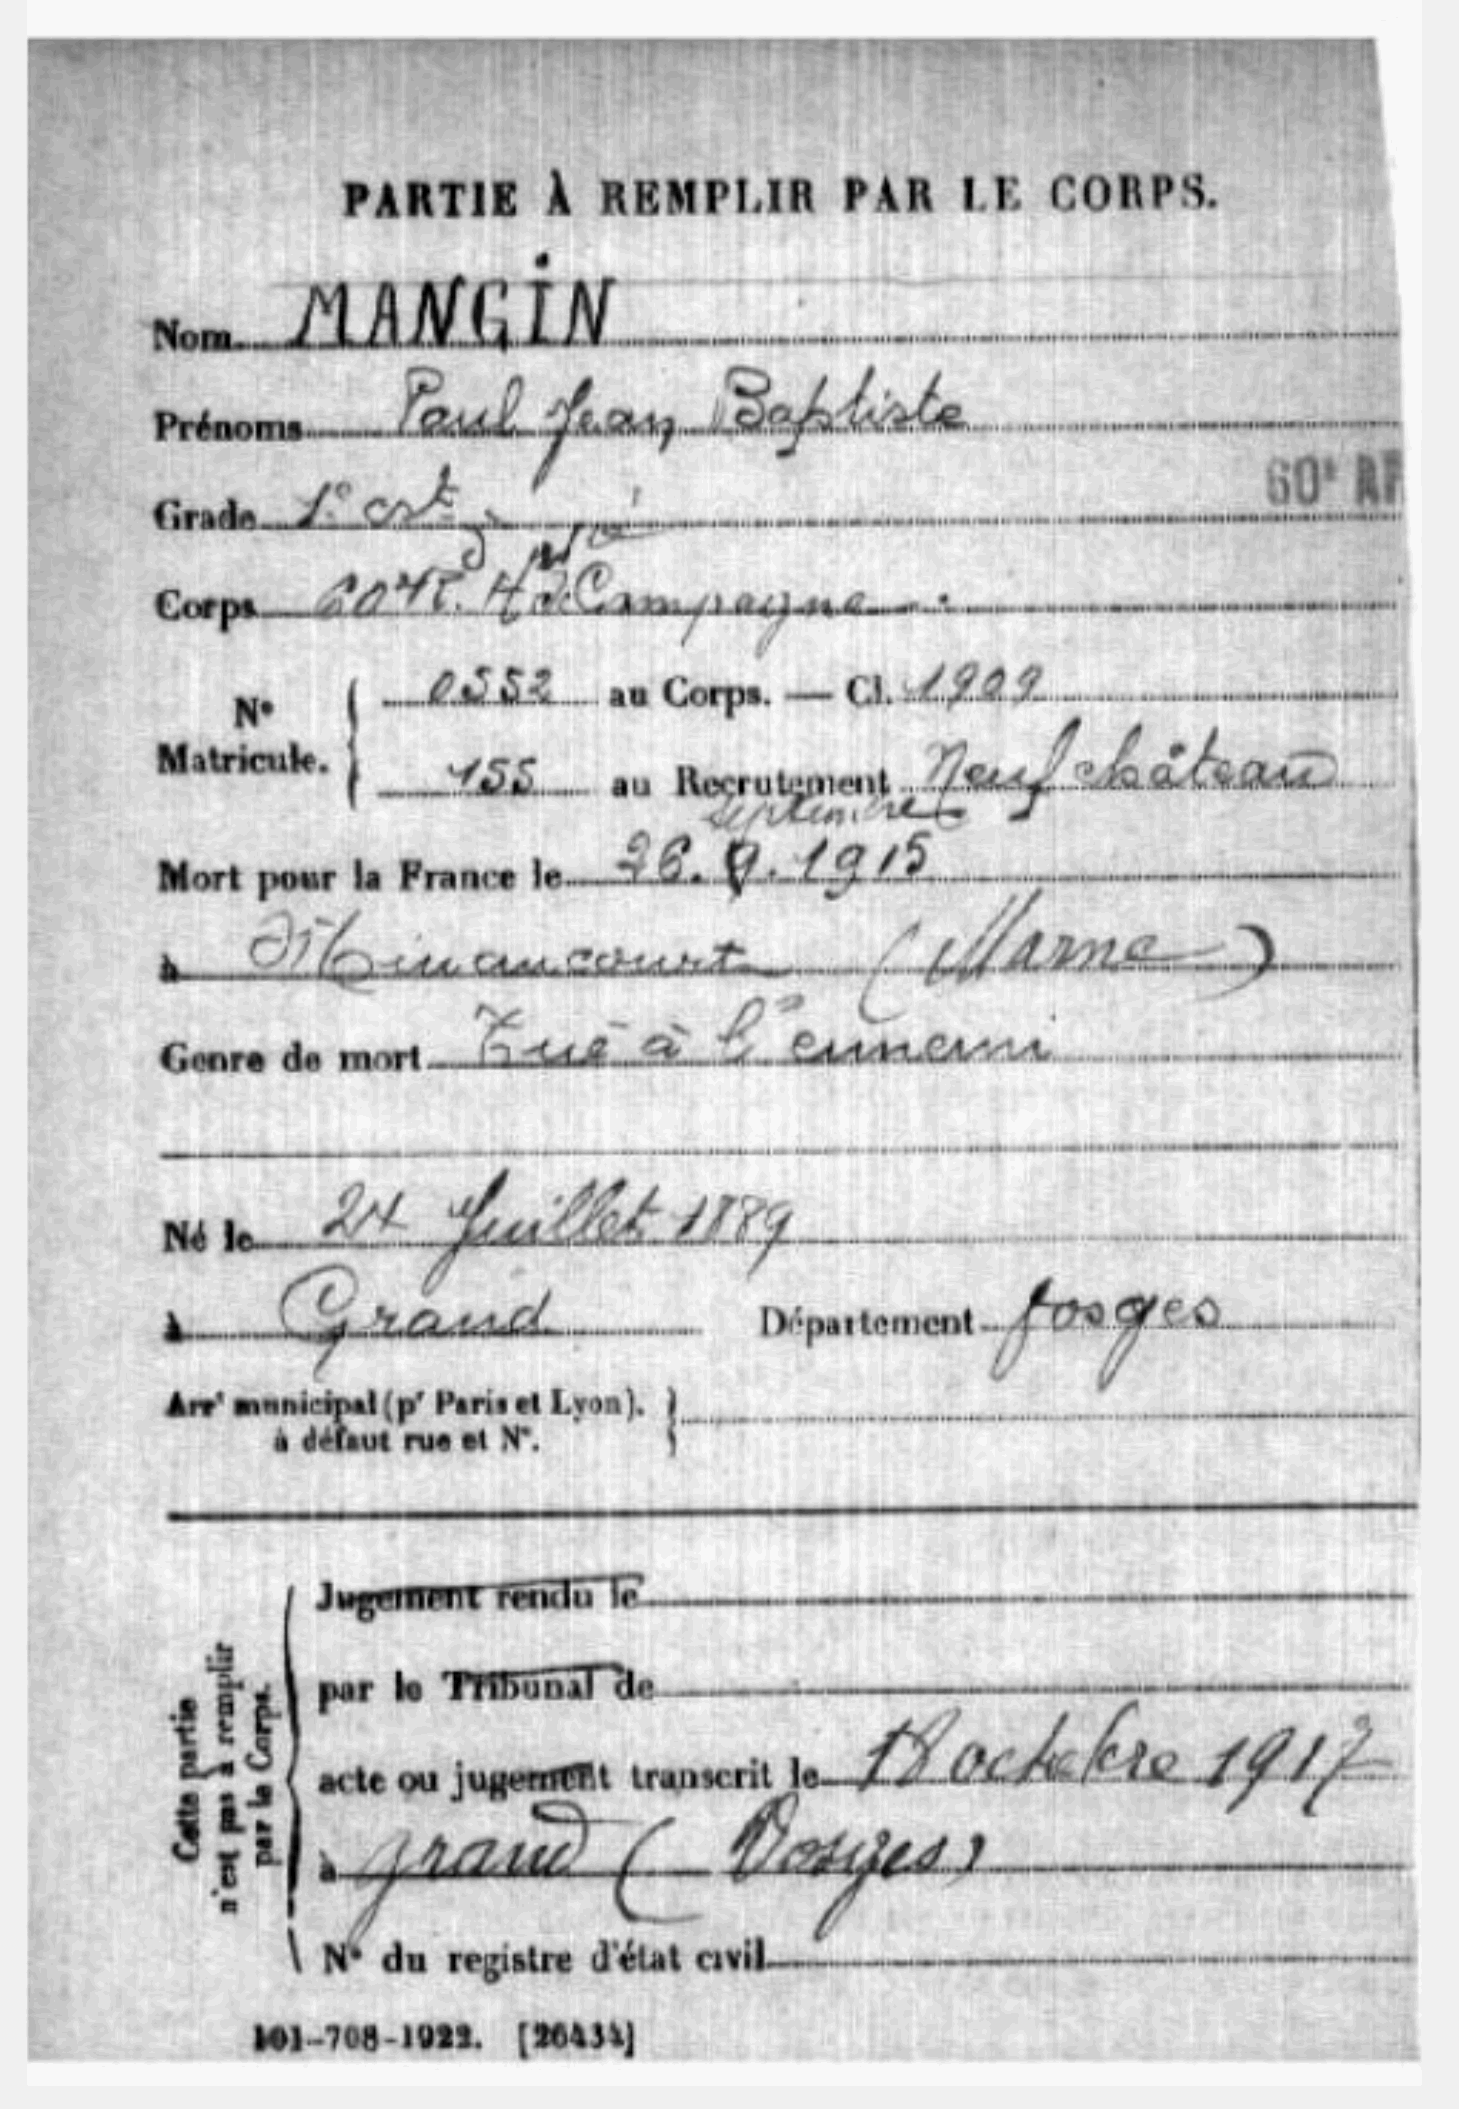 PARTIE À REMPLIR PAR LE CORPS.
Nom MANGIN
Prénoms Paul Jean Baptiste
60e AR
Grade
Corps 60e R. A de Campagne
0552 au Corps. — Cl. 1909
N° Matricule.
155 au Recrutement Neufchâteau
septembre
Mort pour la France le 26.9.1915
à Minaucourt (Marne)
Genre de mort Tué à l'ennemi
Né le 24 Juillet 1889
à Grand Département Vosges
Arrt municipal (pr Paris et Lyon).
à défaut rue et N°.
Cette partie
n'est pas à remplir
par le Corps.
Jugement rendu le
par le Tribunal de
acte ou jugement transcrit le 18 octobre 1917
à grand (Vosges)
N° du registre d'état civil
101-708-1922. [26434]